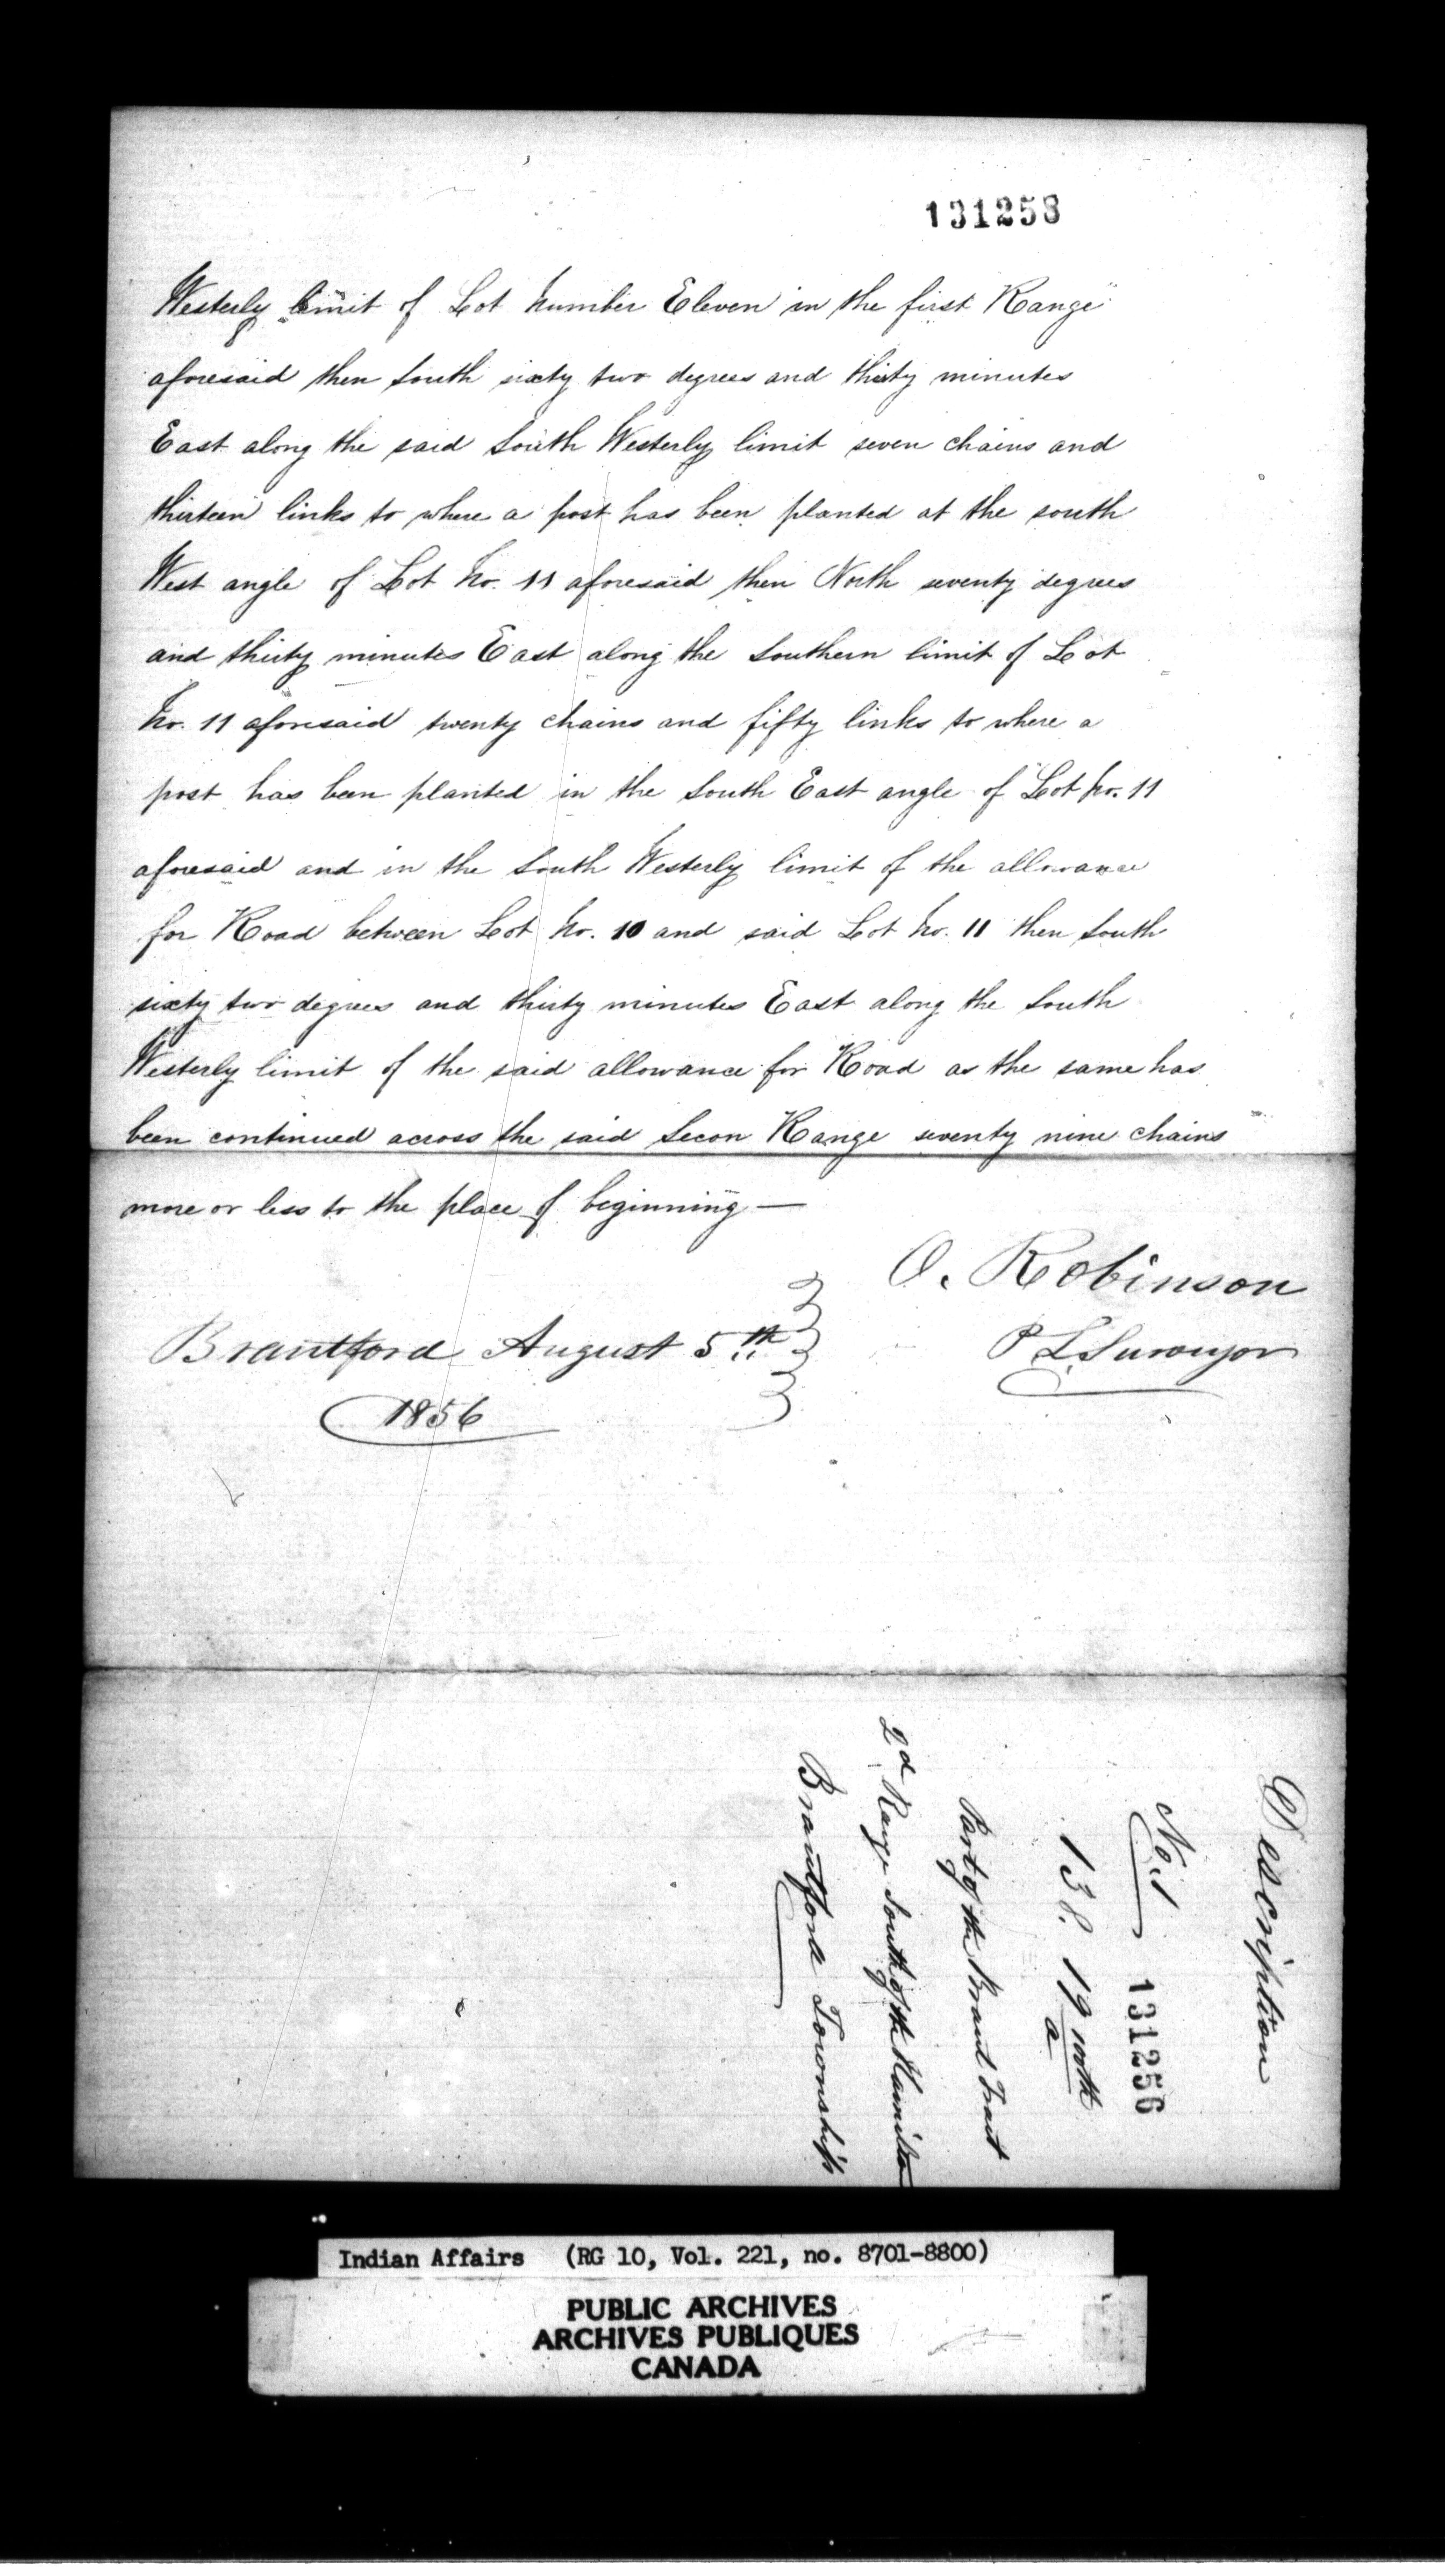 131258
Westerly limit of Lot Number Eleven in the first Range
aforesaid then South sixty two degrees and thirty minutes
East along the said South Westerly limit seven chains and
thirteen links to where a post has been planted at the south
West angle of Lot No. 11 aforesaid then North seventy degrees
and thirty minutes East along the Southern limit of Lot
No. 11 aforesaid twenty chains and fifty links to where a
post has been planted in the South East angle of Lot No. 11
aforesaid and in the South Westerly limit of the allowance
for Road between Lot No. 10 and said Lot No. 11 then South
sixty two degrees and thirty minutes East along the South
Westerly limit of the said allowance for Road as the same has
been continued across the said Secon Range seventy nine chains
more or less to the place of beginning —
O. Robinson
P L Surveyor
Brantford August 5th
1856
Description
No. 1
131256
138. 19 100th a
Part of the Brant Tract
2d Range South of the Hamilton
Brantford Township
Indian Affairs (RG 10, Vol. 221, no. 8701-8800)
PUBLIC ARCHIVES
ARCHIVES PUBLIQUES
CANADA